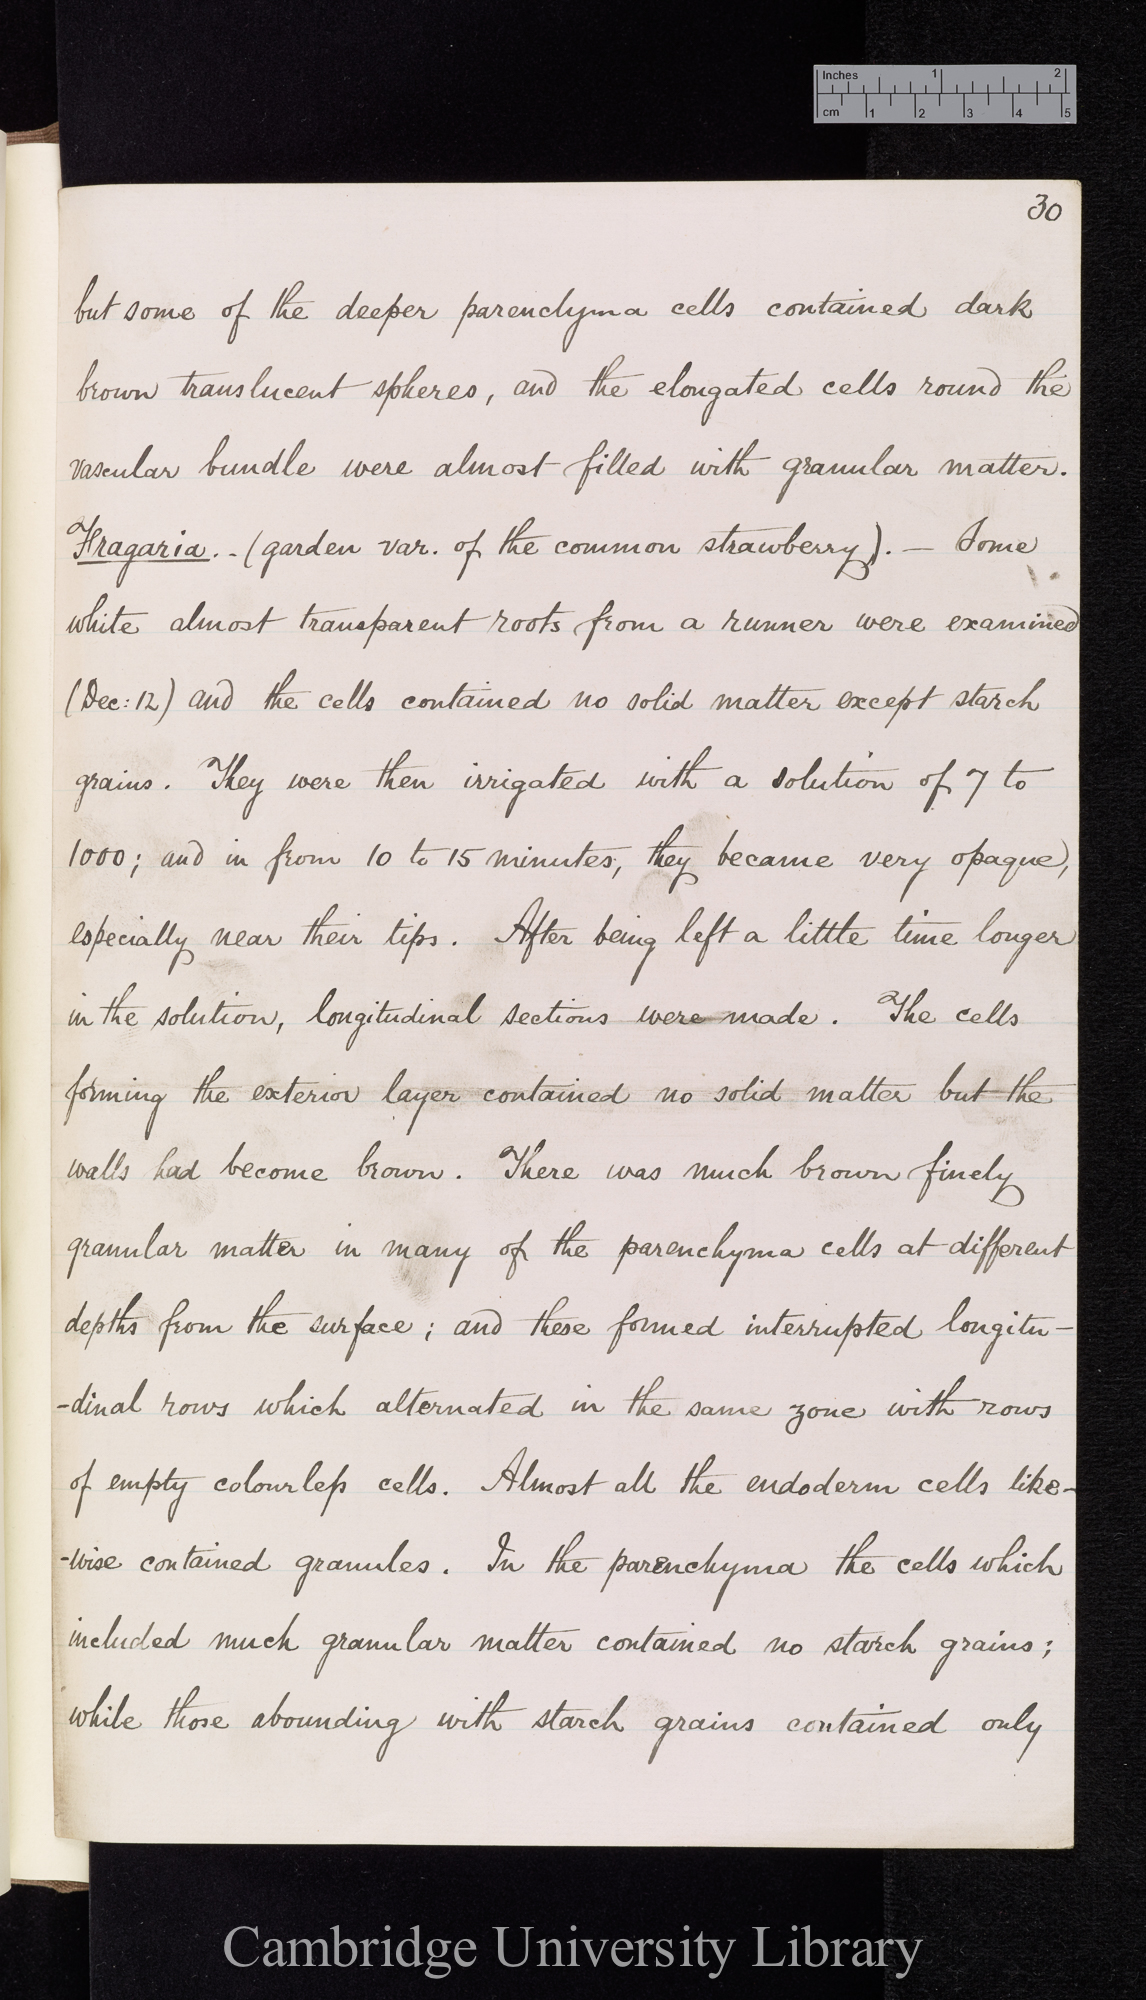 Inches 1 2
cm 1 2 3 4 5
30
but some of the deeper parenchyma cells contained dark
brown translucent spheres, and the elongated cells round the
vascular bundle were almost filled with granular matter.
Fragaria. - (garden var. of the common strawberry). — Some
white almost transparent roots from a runner were examined
(Dec: 12) and the cells contained no solid matter except starch
grains. They were then irrigated with a solution of 7 to
1000; and in from 10 to 15 minutes, they became very opaque,
especially near their tips. After being left a little time longer
in the solution, longitudinal sections were made. The cells
forming the exterior layer contained no solid matter but the
walls had become brown. There was much brown finely
granular matter in many of the parenchyma cells at different
depths from the surface; and these formed interrupted longitu-
-dinal rows which alternated in the same zone with rows
of empty colourless cells. Almost all the endoderm cells like-
-wise contained granules. In the parenchyma the cells which
included much granular matter contained no starch grains;
while those abounding with starch grains contained only
Cambridge University Library